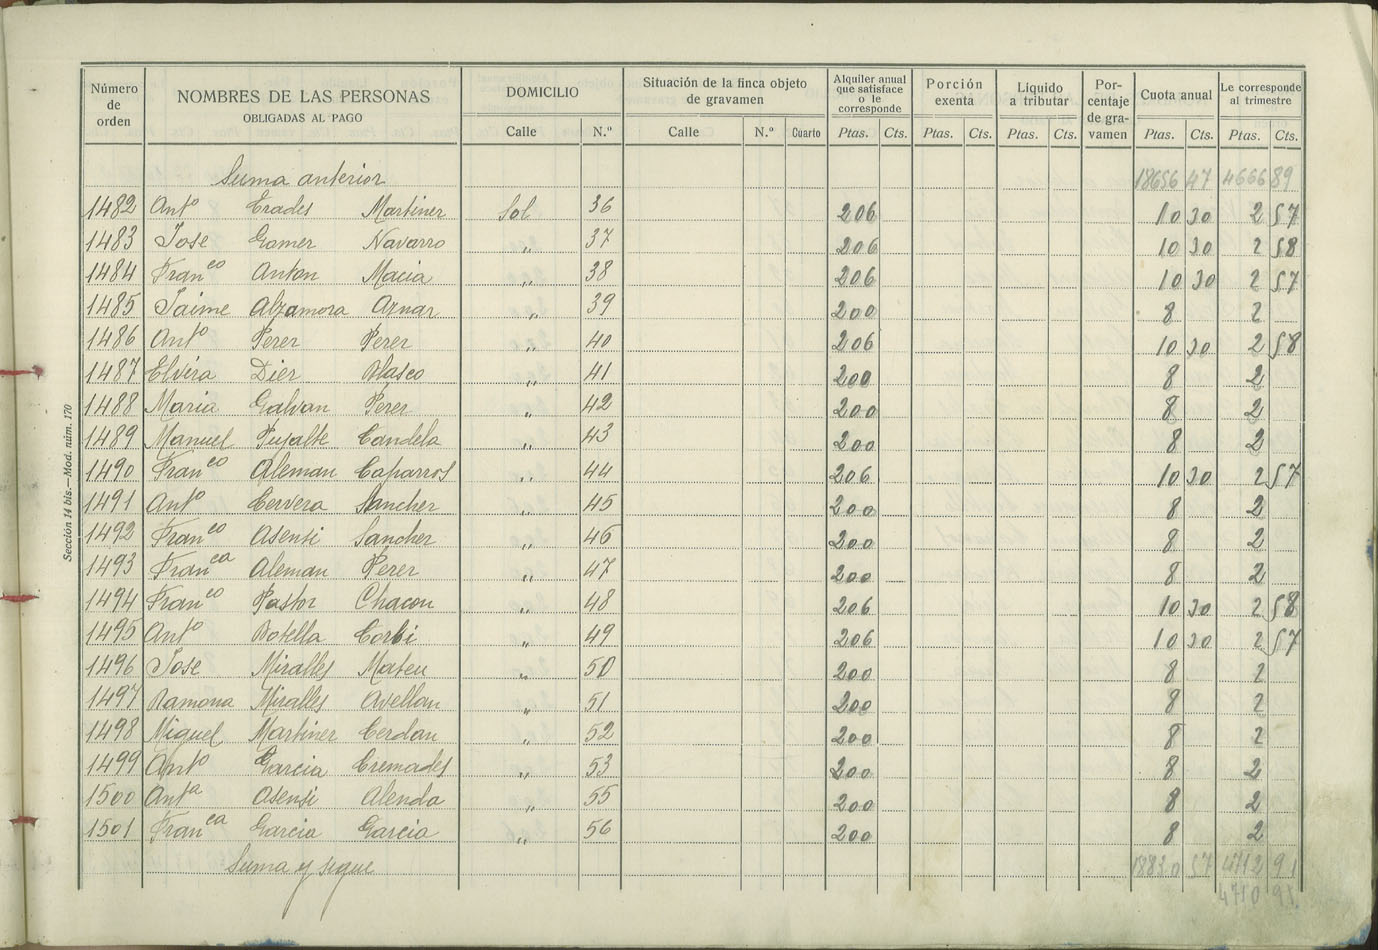 Número de orden
NOMBRES DE LAS PERSONAS
OBLIGADAS AL PAGO
DOMICILIO
Calle N.º
Situación de la finca objeto de gravamen
Calle N.º Cuarto
Alquiler anual que satisface o le corresponde
Ptas. Cts.
Porción exenta
Ptas. Cts.
Líquido a tributar
Ptas. Cts.
Por-centaje de gra-vamen
Cuota anual
Ptas. Cts.
Le corresponde al trimestre
Ptas. Cts.
Suma anterior 18656 47 4666 89
1482 Antº Erades Martiner Sol 36 206 10 30 2 57
1483 Jose Gomer Navarro " 37 206 10 30 2 58
1484 Franco Anton Macia " 38 206 10 30 2 57
1485 Jaime Alzamora Aznar " 39 200 8 2
1486 Antº Perer Perer " 40 206 10 30 2 58
1487 Elvira Dier Blasco " 41 200 8 2
1488 Maria Galvan Perer " 42 200 8 2
1489 Manuel Pujalte Candela " 43 200 8 2
1490 Franco Aleman Caparros " 44 206 10 30 2 57
1491 Antº Cervera Sancher " 45 200 8 2
1492 Franco Asensi Sancher " 46 200 8 2
1493 Franca Aleman Perer " 47 200 8 2
1494 Franco Pastor Chacon " 48 206 10 30 2 58
1495 Antº Botella Corbi " 49 206 10 30 2 57
1496 Jose Miralles Mateu " 50 200 8 2
1497 Ramona Miralles Avellan " 51 200 8 2
1498 Miguel Martiner Cerdan " 52 200 8 2
1499 Antº Garcia Cremades " 53 200 8 2
1500 Antª Asensi Alenda " 55 200 8 2
1501 Franca Garcia Garcia " 56 200 8 2
Suma y sigue 18830 57 4712 91
4710 91
Sección 14 bis.—Mod. núm. 170